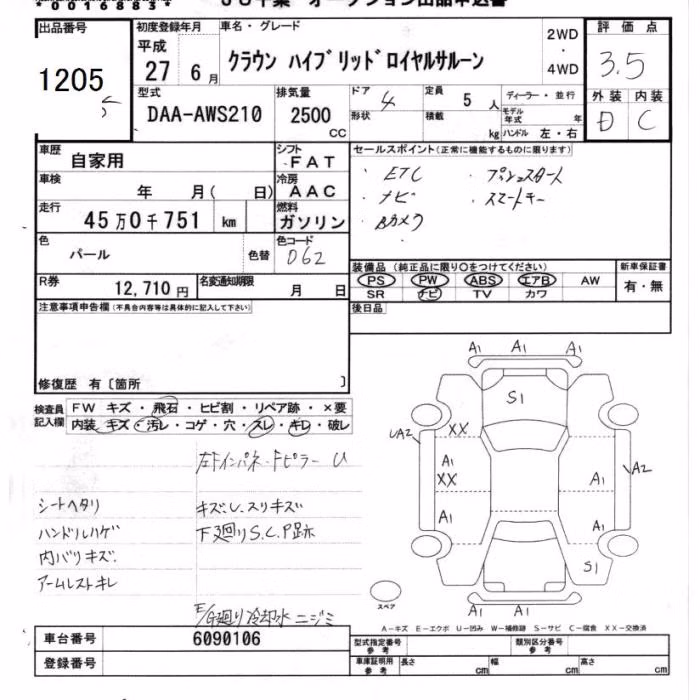 00168831 JU千葉 オークション出品申込書
出品番号 初度登録年月 車名・グレード 2WD・4WD 評価点
1205 平成27年6月 クラウン ハイブリッドロイヤルサルーン 3.5
型式 排気量 ドア 4 定員 5人 ディーラー・並行 外装 内装
DAA-AWS210 2500CC 形状 積載 kg モデル年式 年 ハンドル 左・右 D C
車歴 自家用 シフト FAT セールスポイント(正常に機能するものに限ります)
車検 年 月( 日) 冷房 AAC ・ETC ・プッシュスタート
走行 45万0千751km 燃料 ガソリン ・ナビ ・スマートキー
・Bカメラ
色 パール 色替 色コード 062
装備品(純正品に限り○をつけてください) 新車保証書
PS PW ABS エアB AW 有・無
SR ナビ TV カワ
R券 12,710円 名変通知期限 月 日
注意事項申告欄(不具合内容等は具体的に記入して下さい) 後日品
修復歴 有〔箇所 〕
検査員記入欄 FW キズ・飛石・ヒビ割・リペア跡・×要
内装 キズ・汚レ・コゲ・穴・スレ・キレ・破レ
左Fインパネ-Fピラー U
シートヘタリ キズU.スリキズ
ハンドルハゲ 下廻りS.C.P跡
内バリキズ.
アームレストキレ
E/G廻り冷却水ニジミ
A1 A1 A1
S1
UA2 XX
A1 A1 A2
XX
A1 A1
S1
A1 A1
スペア
A-キズ E-エクボ U-凹み W-補修跡 S-サビ C-腐食 XX-交換済
車台番号 6090106 型式指定番号 参考 類別区分番号 参考
登録番号 車庫証明用 参考 長さ cm 幅 cm 高さ cm